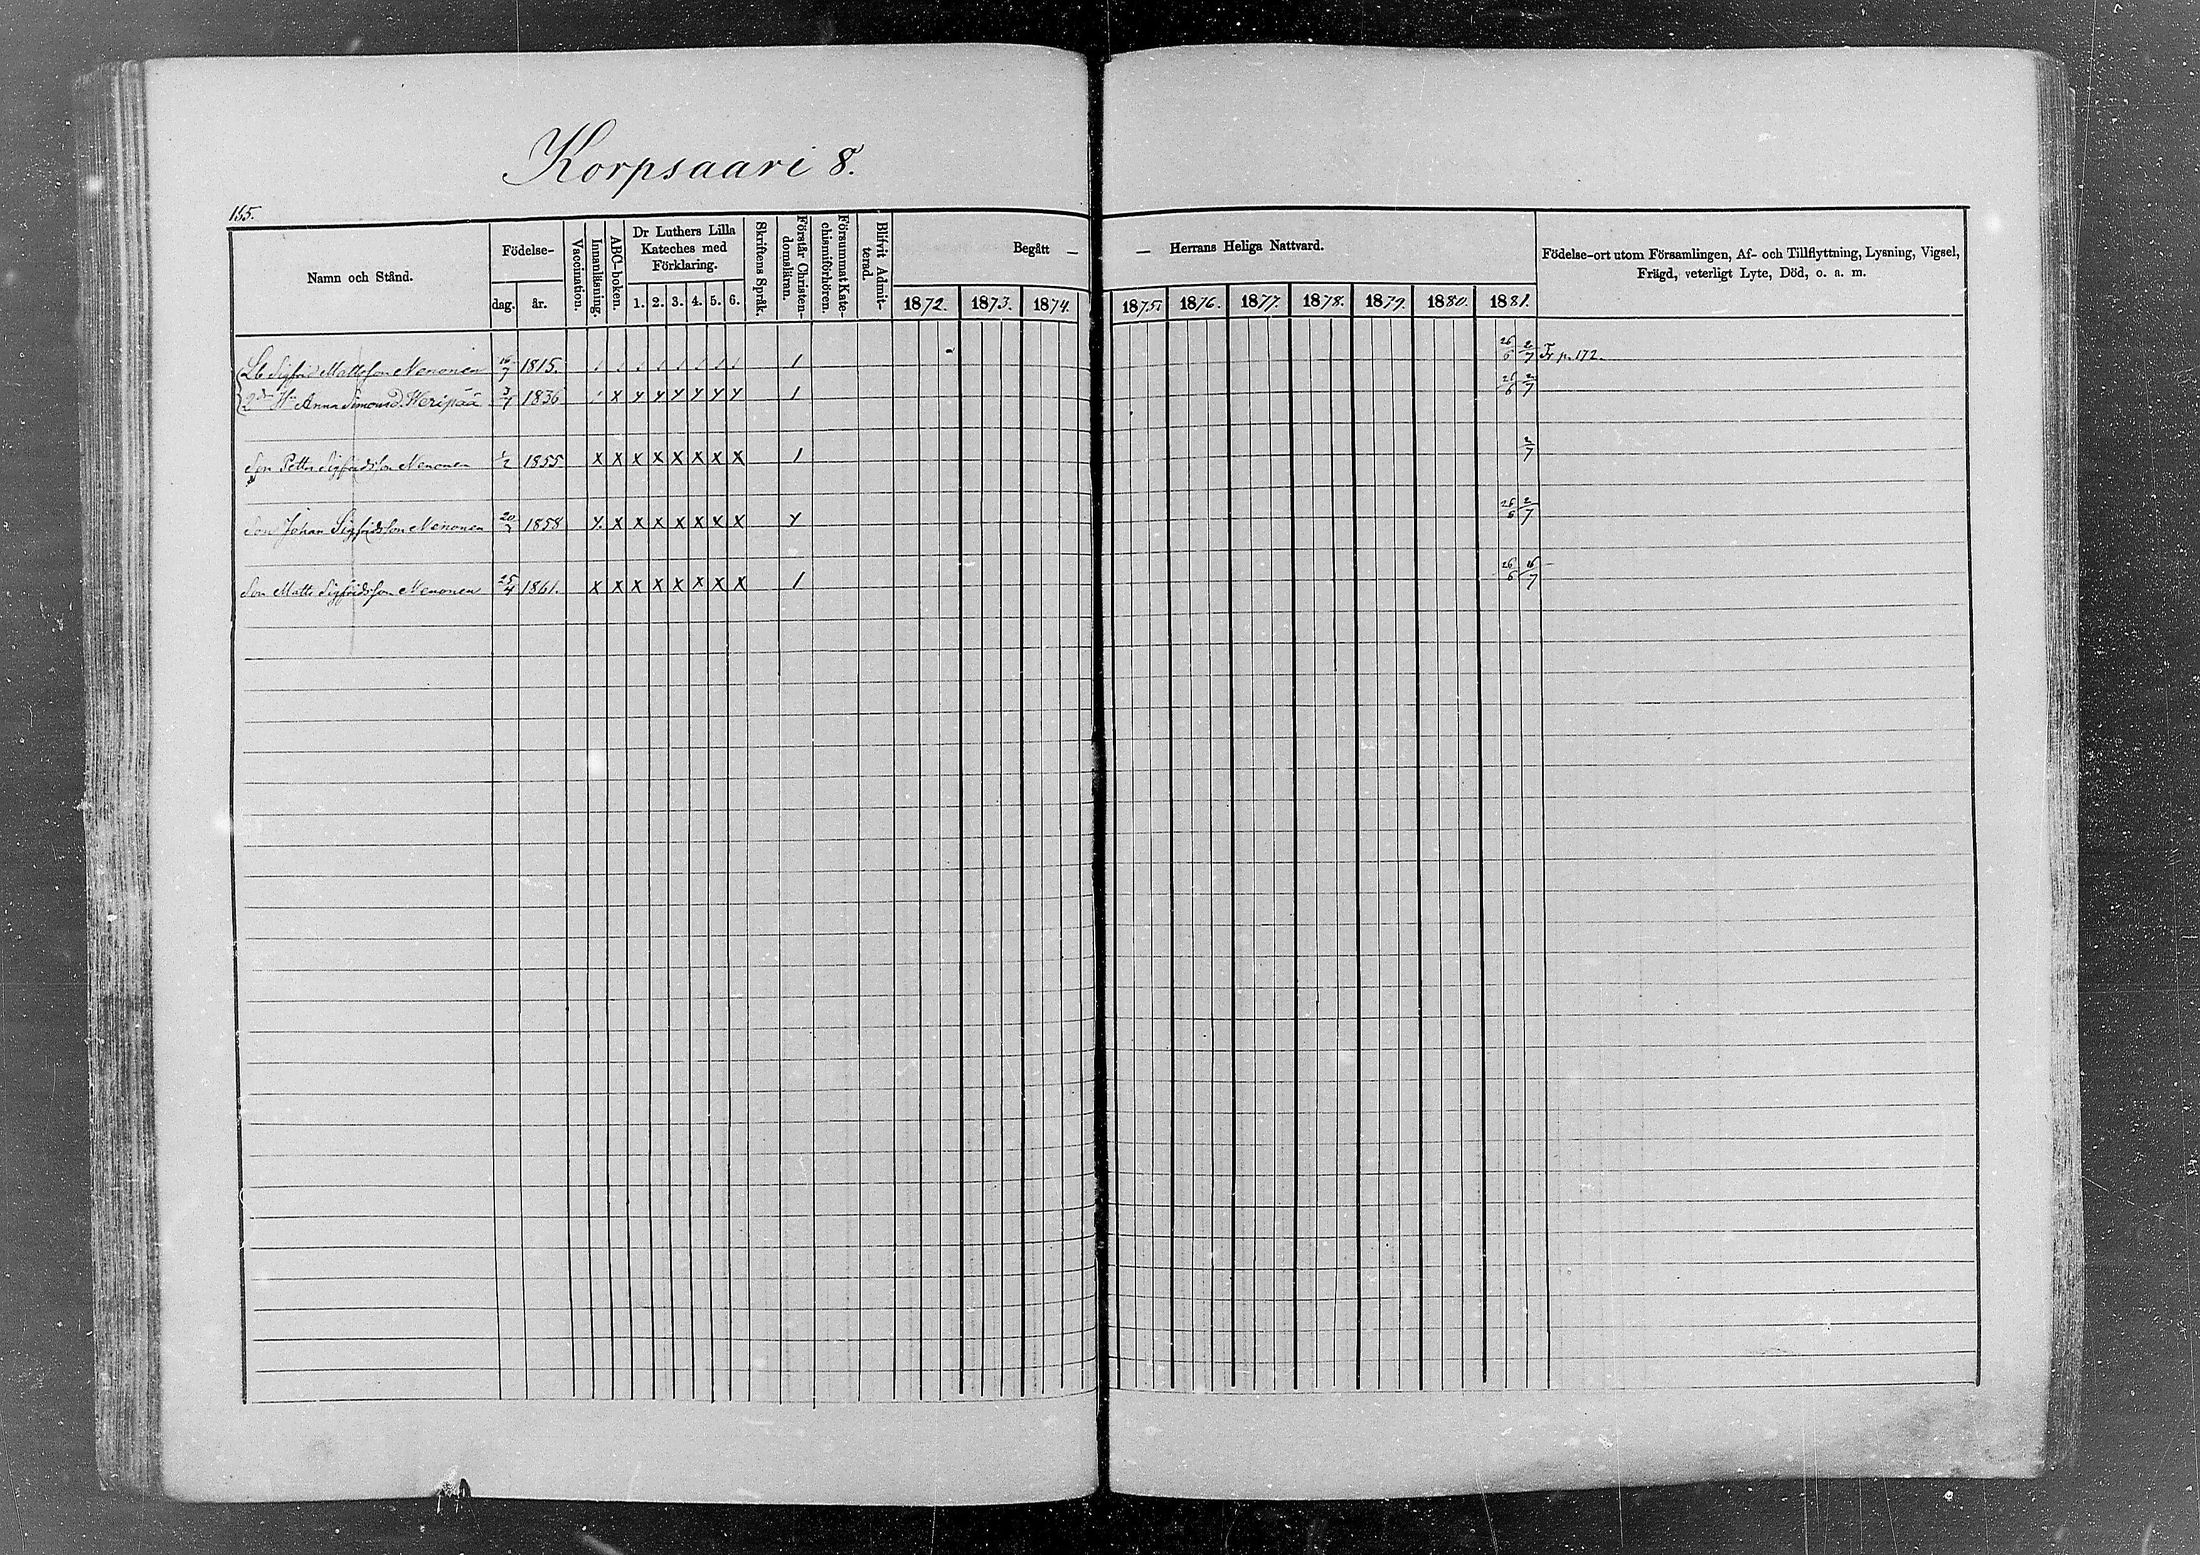 Korpsaari 8.
155.
Namn och Stånd. Födelse- dag. år. Vaccination. Innanläsning. ABC-boken. Dr Luthers Lilla Kateches med Förklaring. 1. 2. 3. 4. 5. 6. Skriftens Språk. Förstår Christendomsläran. Försummat Katechismiförhören. Blifvit Admitterad. Begått — — Herrans Heliga Nattvard. Födelse-ort utom Församlingen, Af- och Tillflyttning, Lysning, Vigsel, Frägd, veterligt Lyte, Död, o. a. m.
1872. 1873. 1874. 1875. 1876. 1877. 1878. 1879. 1880. 1881.
Sigfrid Mattsson Nenonen 1815. / / / / / / / / 1 26/6 2/7 Fr p. 172.
2dr H. Anna Simonsd. Weripää 1836 / x y y y y y y 1 26/6 2/7
Son Petter Sigfridsson Nenonen 1/2 1855 x x x x x x x x 1 2/7
Son Johan Sigfridsson Nenonen 1858 x x x x x x x x y 26/6 2/7
Son Matts Sigfridsson Nenonen 25/4 1861. x x x x x x x x 1 26/6 16/7